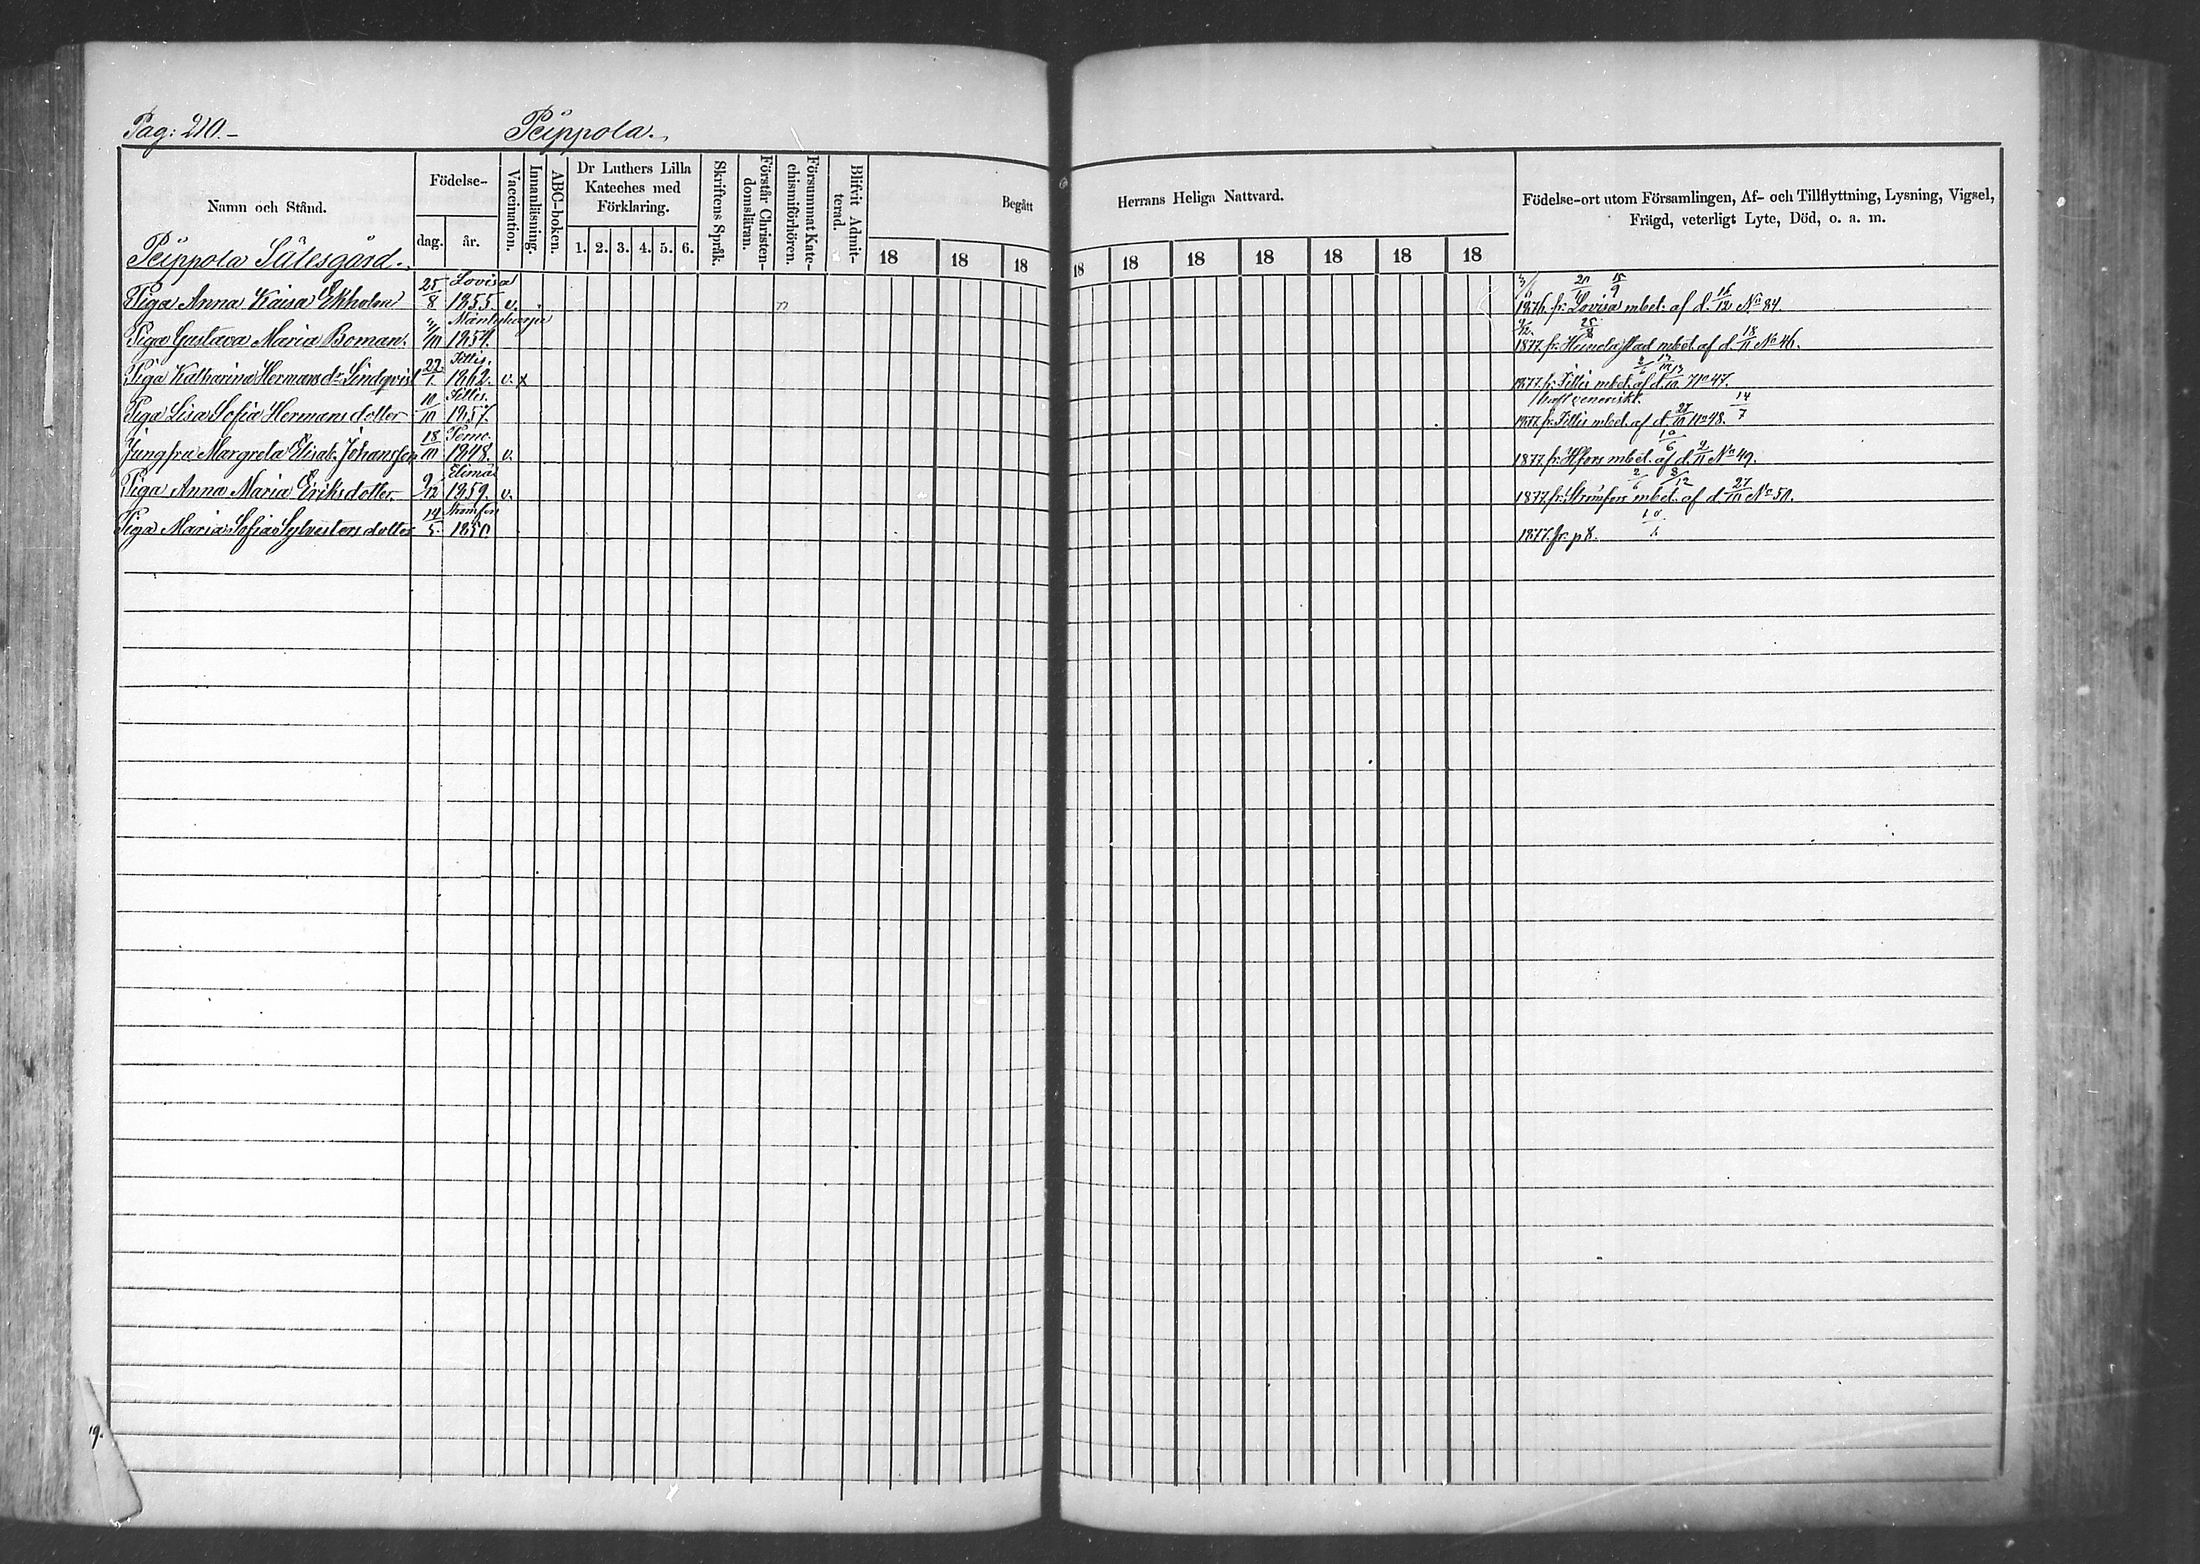 Pag: 210.- Peippola.
Namn och Stånd. Födelse- dag. år. Vaccination. Innanläsning. ABC-boken. Dr Luthers Lilla Kateches med Förklaring. 1. 2. 3. 4. 5. 6. Skriftens Språk. Förstår Christendomsläran. Försummat Katechismiförhören. Blifvit Admitterad. Begått Herrans Heliga Nattvard. 18 18 18 18 18 18 18 18 18 18
Födelse-ort utom Församlingen, Af- och Tillflyttning, Lysning, Vigsel,
Frägd, veterligt Lyte, Död, o. a. m.
Peippola Sätesgård.
Piga Anna Kaisa Ekholm 25/8 Lovisa 1855. v. n 1876 fr. Lovisa mbet: af d. 16/12 No 84.
Piga Gustava Maria Boman. Mäntyharju 1854. 1877 fr. Heinola stad mbet af d. 18/11 No 46.
Piga Katharina Hermansdr Lindqvist 22/1. Ittis. 1862. v. x 1877 fr. Ittis mbet. af d. No 47.
Piga Lisa Sofia Hermansdotter 10/10 Ittis. 1857. 1877 fr. Ittis mbet. af d. 27/10 No 48. 14/7
Jungfru Margreta Elisab. Johansson 18/10 Perno. 1848. v. 1877. fr. Hfors mbet. af d. No 49.
Piga Anna Maria Eriksdotter 9/12 Elimä 1859. v. 1877. fr. Strömfors mbet. af d. 27/10 No 50.
Piga Maria Sofia Sylvestersdotter 14/5. Strömfors 1850 1877. fr. p 8.
19.